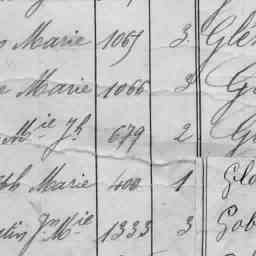 Marie 1065 3 Gle
Marie 1066 3 G
Mie Jh 679 2 G
Marie 400 1 Glo
tin Jn Mie 1333 3 Gob